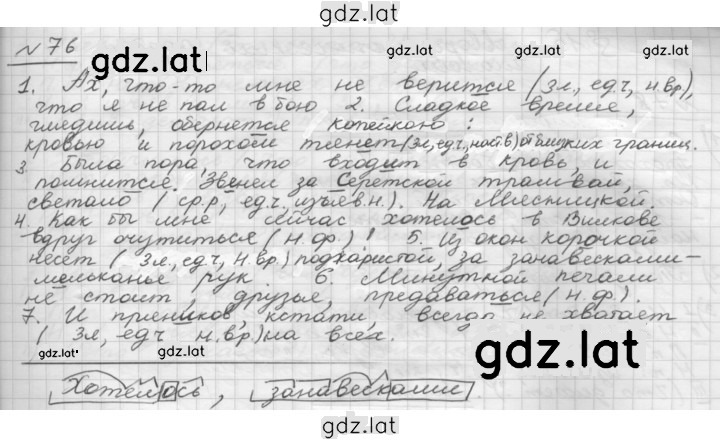 gdz.lat
№ 76
gdz.lat
gdz.lat
gdz.lat
1. Ах, что-то мне не верится (3л., ед.ч, н.вр),
что я не пал в бою 2. Сладкое время,
глядишь, обернется копейкою:
кровью и порохом тянет (3л, ед.ч, наст.в) от близких границ.
3. Была пора, что входит в кровь, и
помнится. Звенел за Серетской трамвай,
светало (ср.р, ед.ч. изъяв.н.). На Мясницкой.
4. Как бы мне сейчас хотелось в Вилкове
вдруг очутиться (н.ф.)! 5. Из окон корочкой
несет (3л, ед.ч, н.вр.) поджаристой, за занавесками-
мельканье рук. 6. Минутной печали
не стоит, друзья, предаваться (н.ф.).
7. И пряников, кстати, всегда не хватает
(3л, ед.ч н.вр) на всех.
gdz.lat
gdz.lat
gdz.lat
Хотелось, занавесками.
gdz.lat